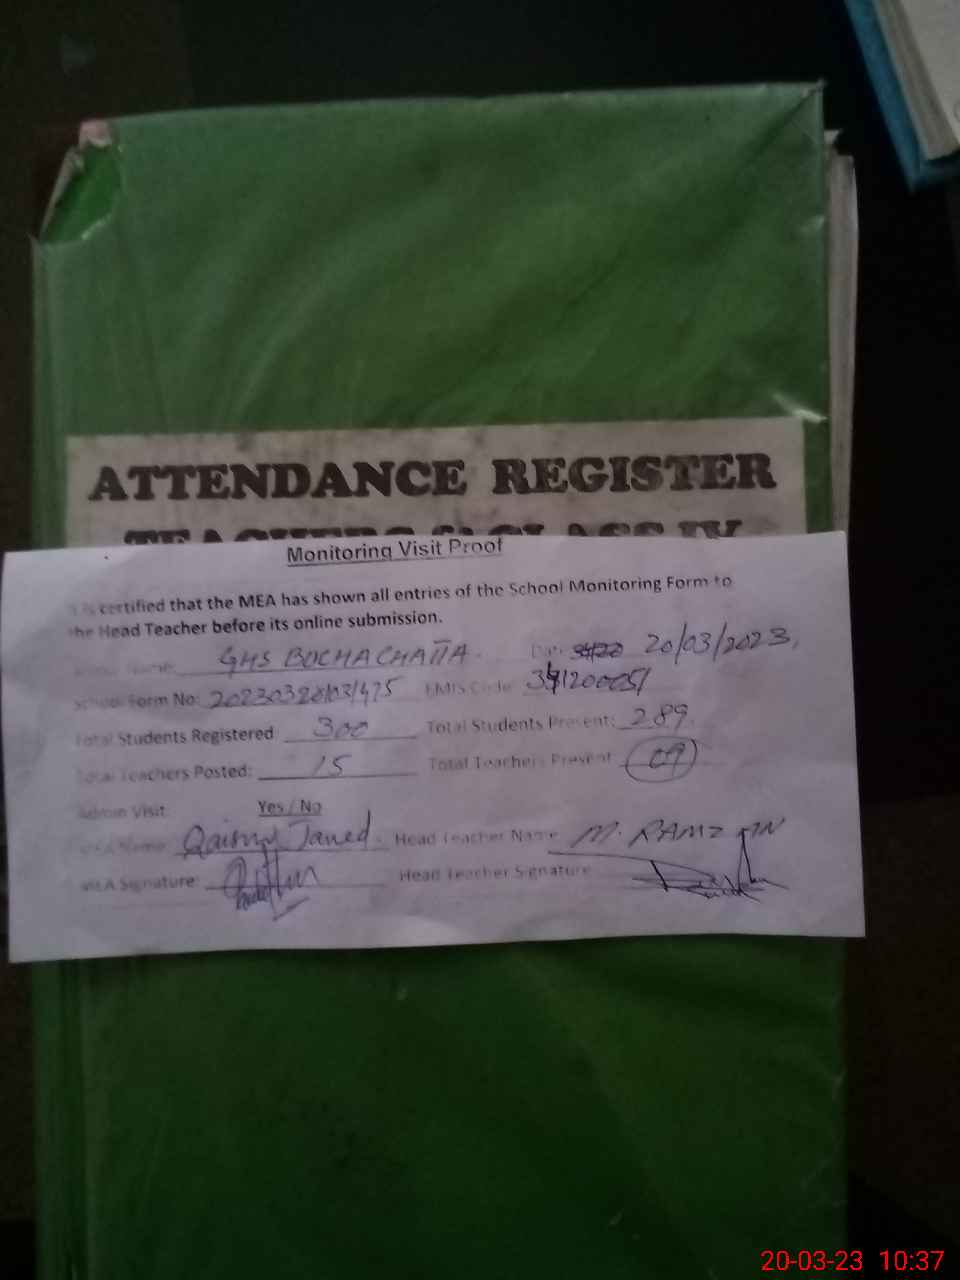 ATTENDANCE REGISTER
TEACHERS & CLASS IV
Monitoring Visit Proof
It is certified that the MEA has shown all entries of the School Monitoring Form to
the Head Teacher before its online submission.
School Name: GHS BUCHA CHATTA. Date 20/03/2023,
School Form No: EMIS Code:
Total Students Registered 300 Total Students Present: 289
Total Teachers Posted: 15 Total Teachers Present 09
Admin Visit: Yes / No
MEA Name: Head Teacher Name M. RAMZAN
MEA Signature: Head Teacher Signature
20-03-23 10:37